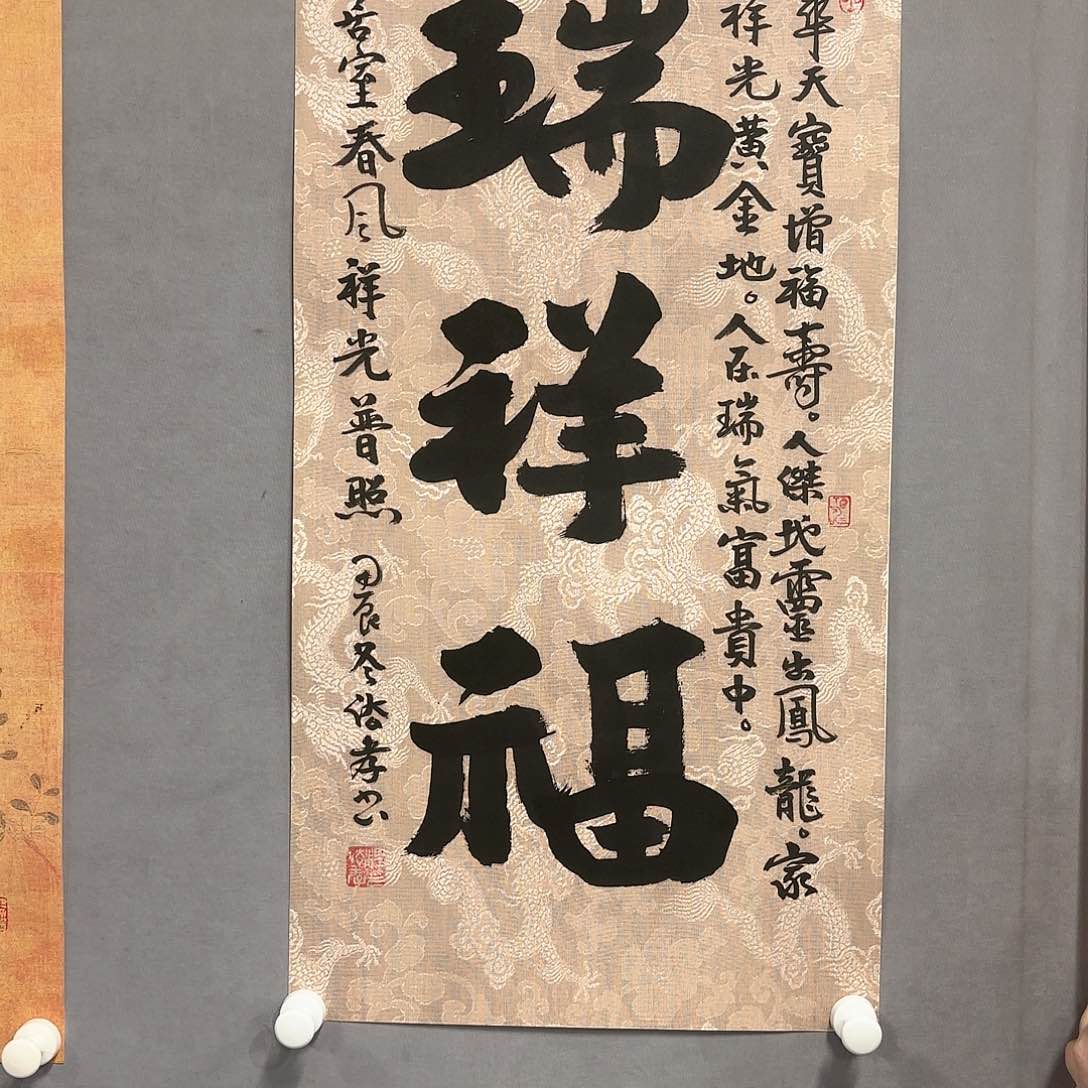 華天寶增福壽。人傑地靈出鳳龍。家
祥光黄金地。人在瑞氣富貴中。
瑞祥福
室春风祥光普照 甲辰冬孝书